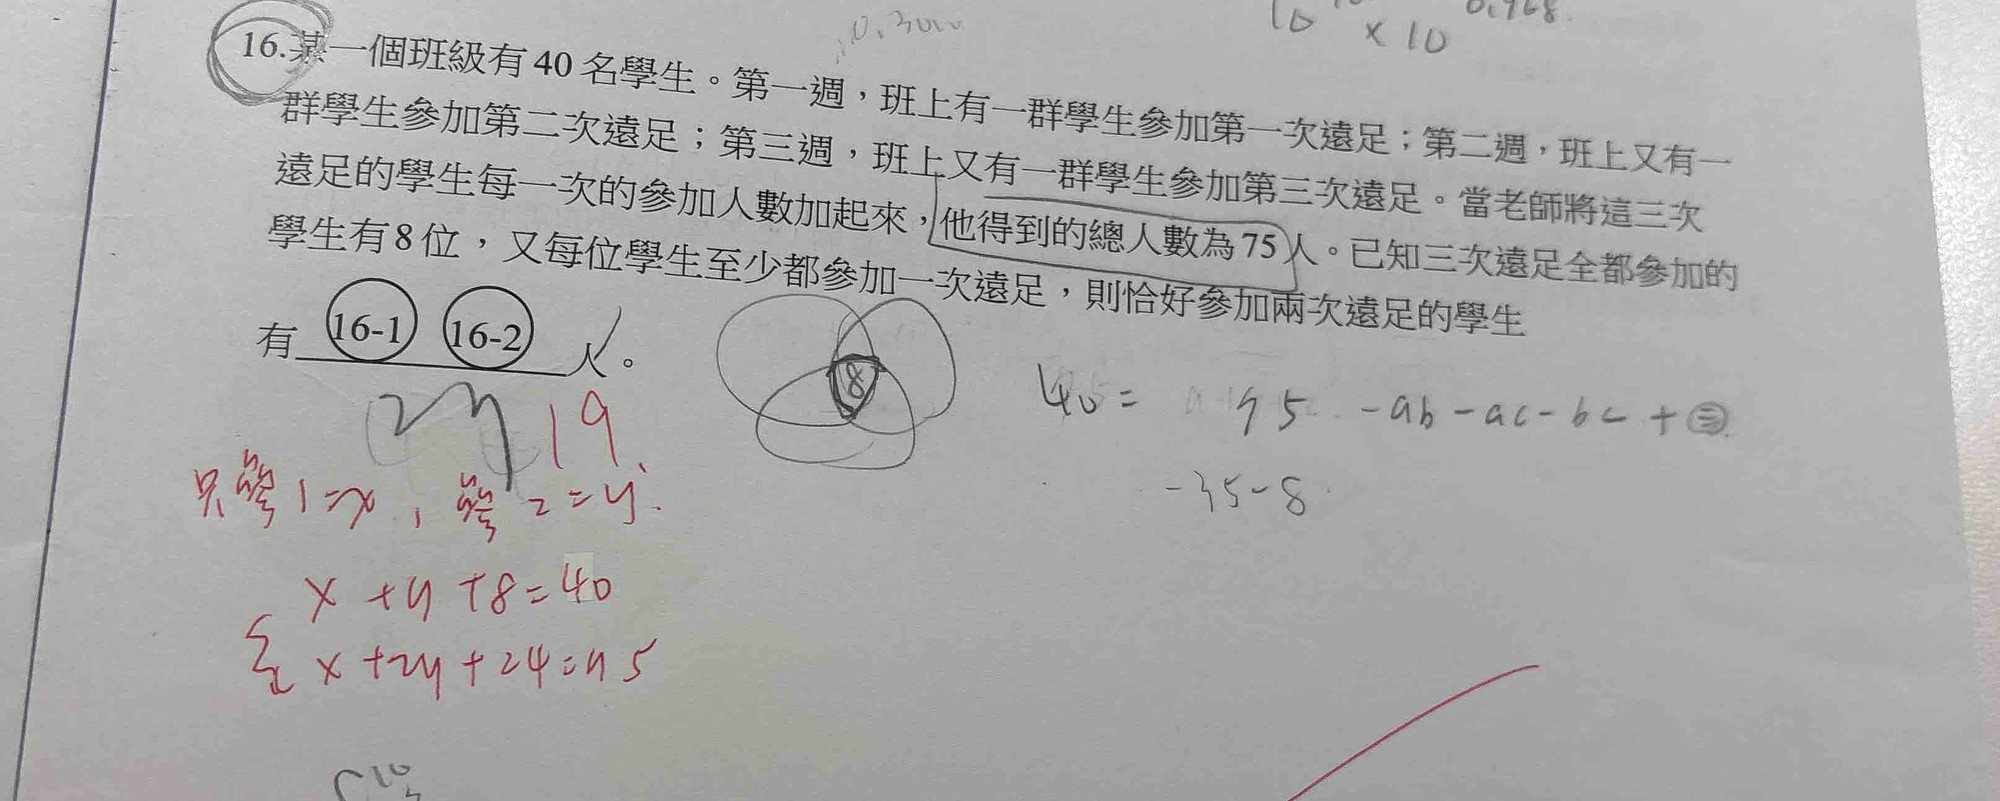 0.3010
10 × 10
16.某一個班級有40名學生。第一週，班上有一群學生參加第一次遠足；第二週，班上又有一
群學生參加第二次遠足；第三週，班上又有一群學生參加第三次遠足。當老師將這三次
遠足的學生每一次的參加人數加起來，他得到的總人數為75人。已知三次遠足全都參加的
學生有8位，又每位學生至少都參加一次遠足，則恰好參加兩次遠足的學生
有 16-1 16-2 人。
8
27 19
40= 75 -ab-ac-bc+三
-35-8
只參1=x，參2=y.
x+y+8=40
x+2y+24=75